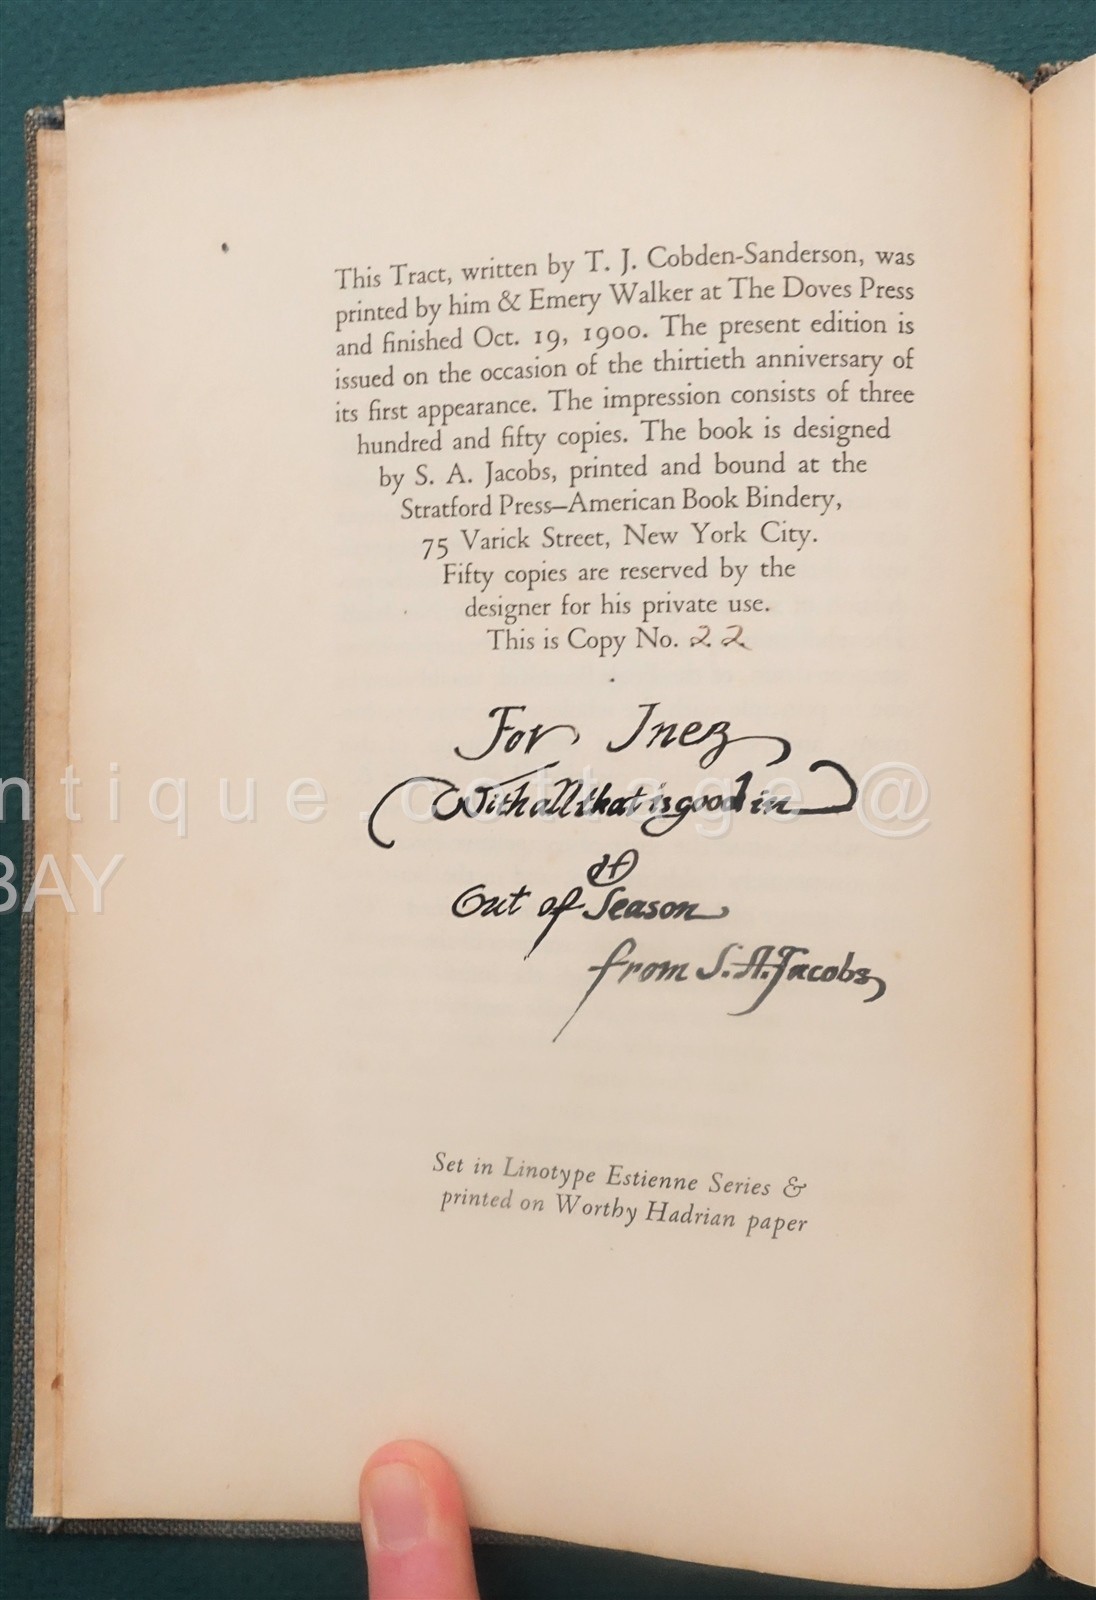 This Tract, written by T. J. Cobden-Sanderson, was
printed by him & Emery Walker at The Doves Press
and finished Oct. 19, 1900. The present edition is
issued on the occasion of the thirtieth anniversary of
its first appearance. The impression consists of three
hundred and fifty copies. The book is designed
by S. A. Jacobs, printed and bound at the
Stratford Press—American Book Bindery,
75 Varick Street, New York City.
Fifty copies are reserved by the
designer for his private use.
This is Copy No. 22
For Inez
With all that is good in
ntique.cottage @
BAY
Out of Season
from S. A. Jacobs
Set in Linotype Estienne Series &
printed on Worthy Hadrian paper